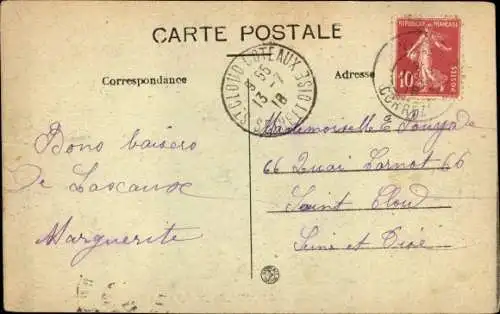 CARTE POSTALE
Correspondance
Adresse
ST CLOUD COTEAUX
8 55
13 - 7
18
SEINE ET OISE
REPUBLIQUE FRANÇAISE
10
POSTES
CORRÈZE
Bons baisers
De Lascaux
Marguerite
Mademoiselle
66 Quai Carnot 66
Saint Cloud
Seine et Oise